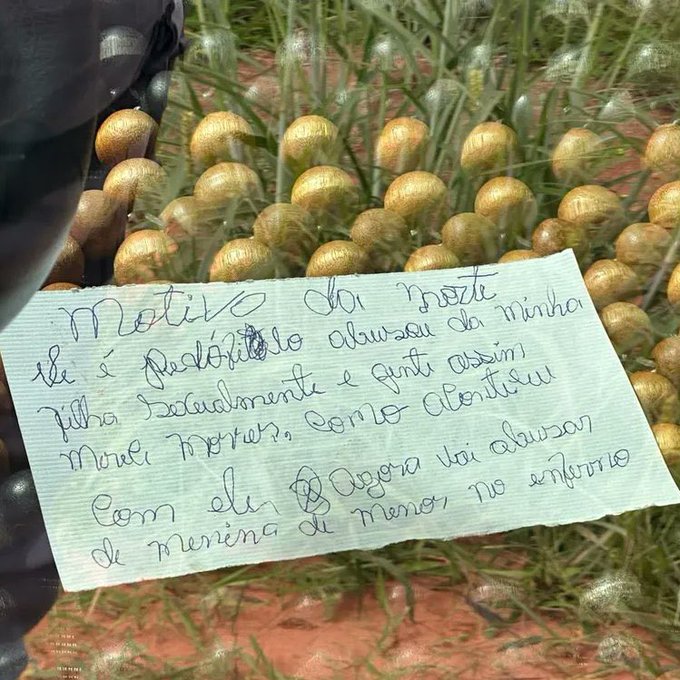 Motivo da morte
ele é pedófilo abusou da minha
filha sexualmente e gente assim
Morre, como aconteceu
com ele, agora vai abusar
de menina de menor no enferno